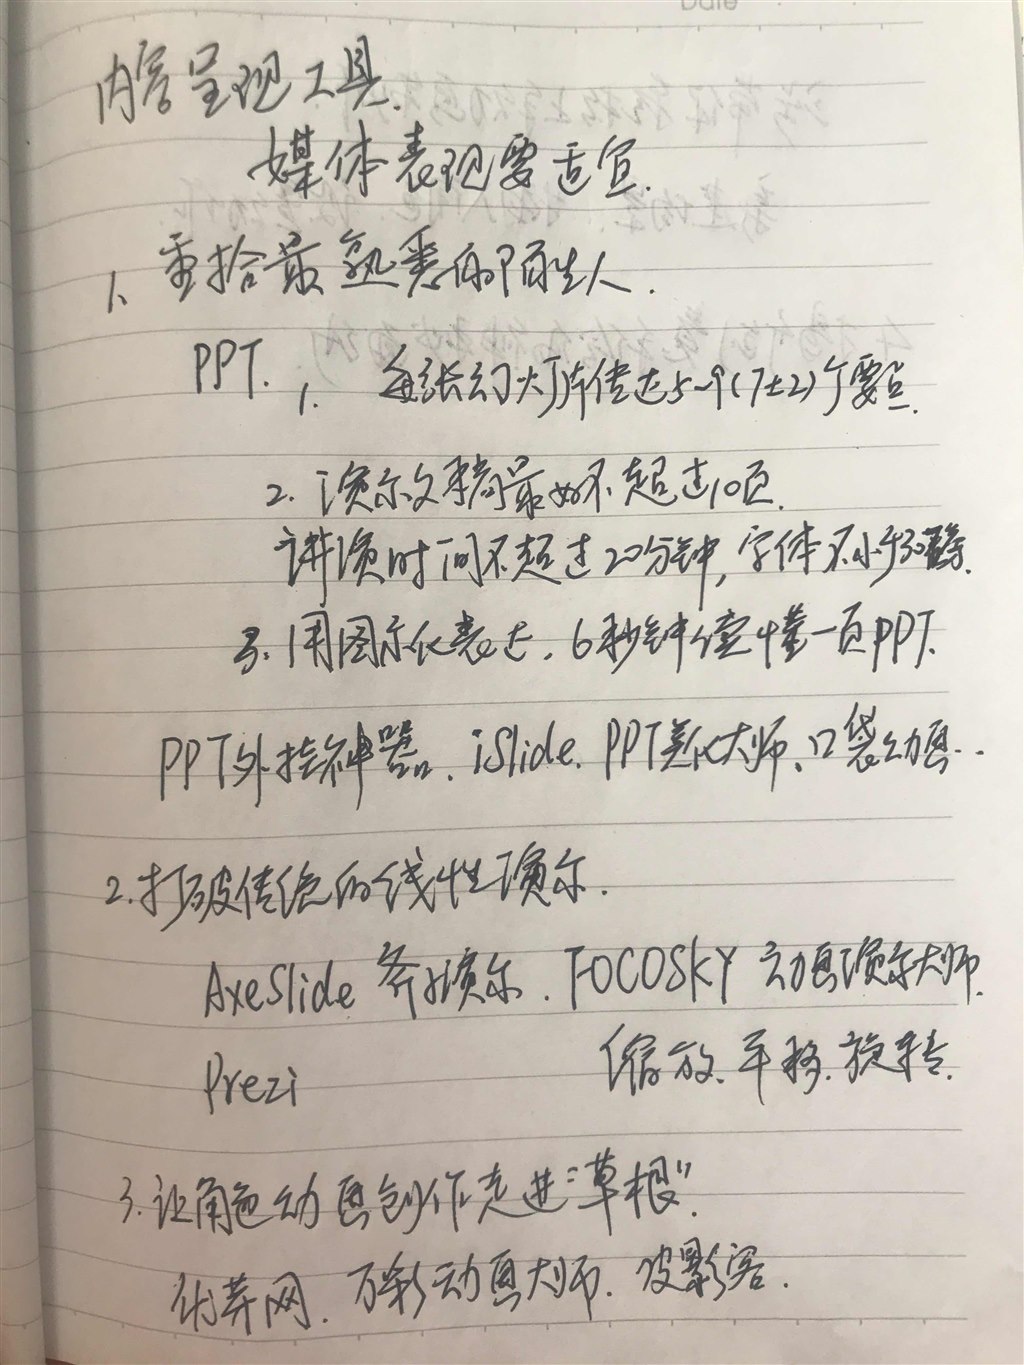 Date
内容呈现工具.
媒体表现要适宜.
1、重拾最熟悉的陌生人.
PPT. 1. 每张幻灯片传达5-9(7±2)个要点.
2. 演示文稿最好不超过10页.
讲演时间不超过20分钟,字体不小于30磅.
3. 用图示化表达. 6秒钟读懂一页PPT.
PPT外挂神器. iSlide. PPT美化大师、口袋动画..
2.打破传统的线性演示.
AxeSlide 斧子演示. FOCOSKY 动画演示大师.
Prezi 缩放、平移.旋转.
3.让角色动画创作走进"草根".
网. 万彩动画大师. 皮影客.